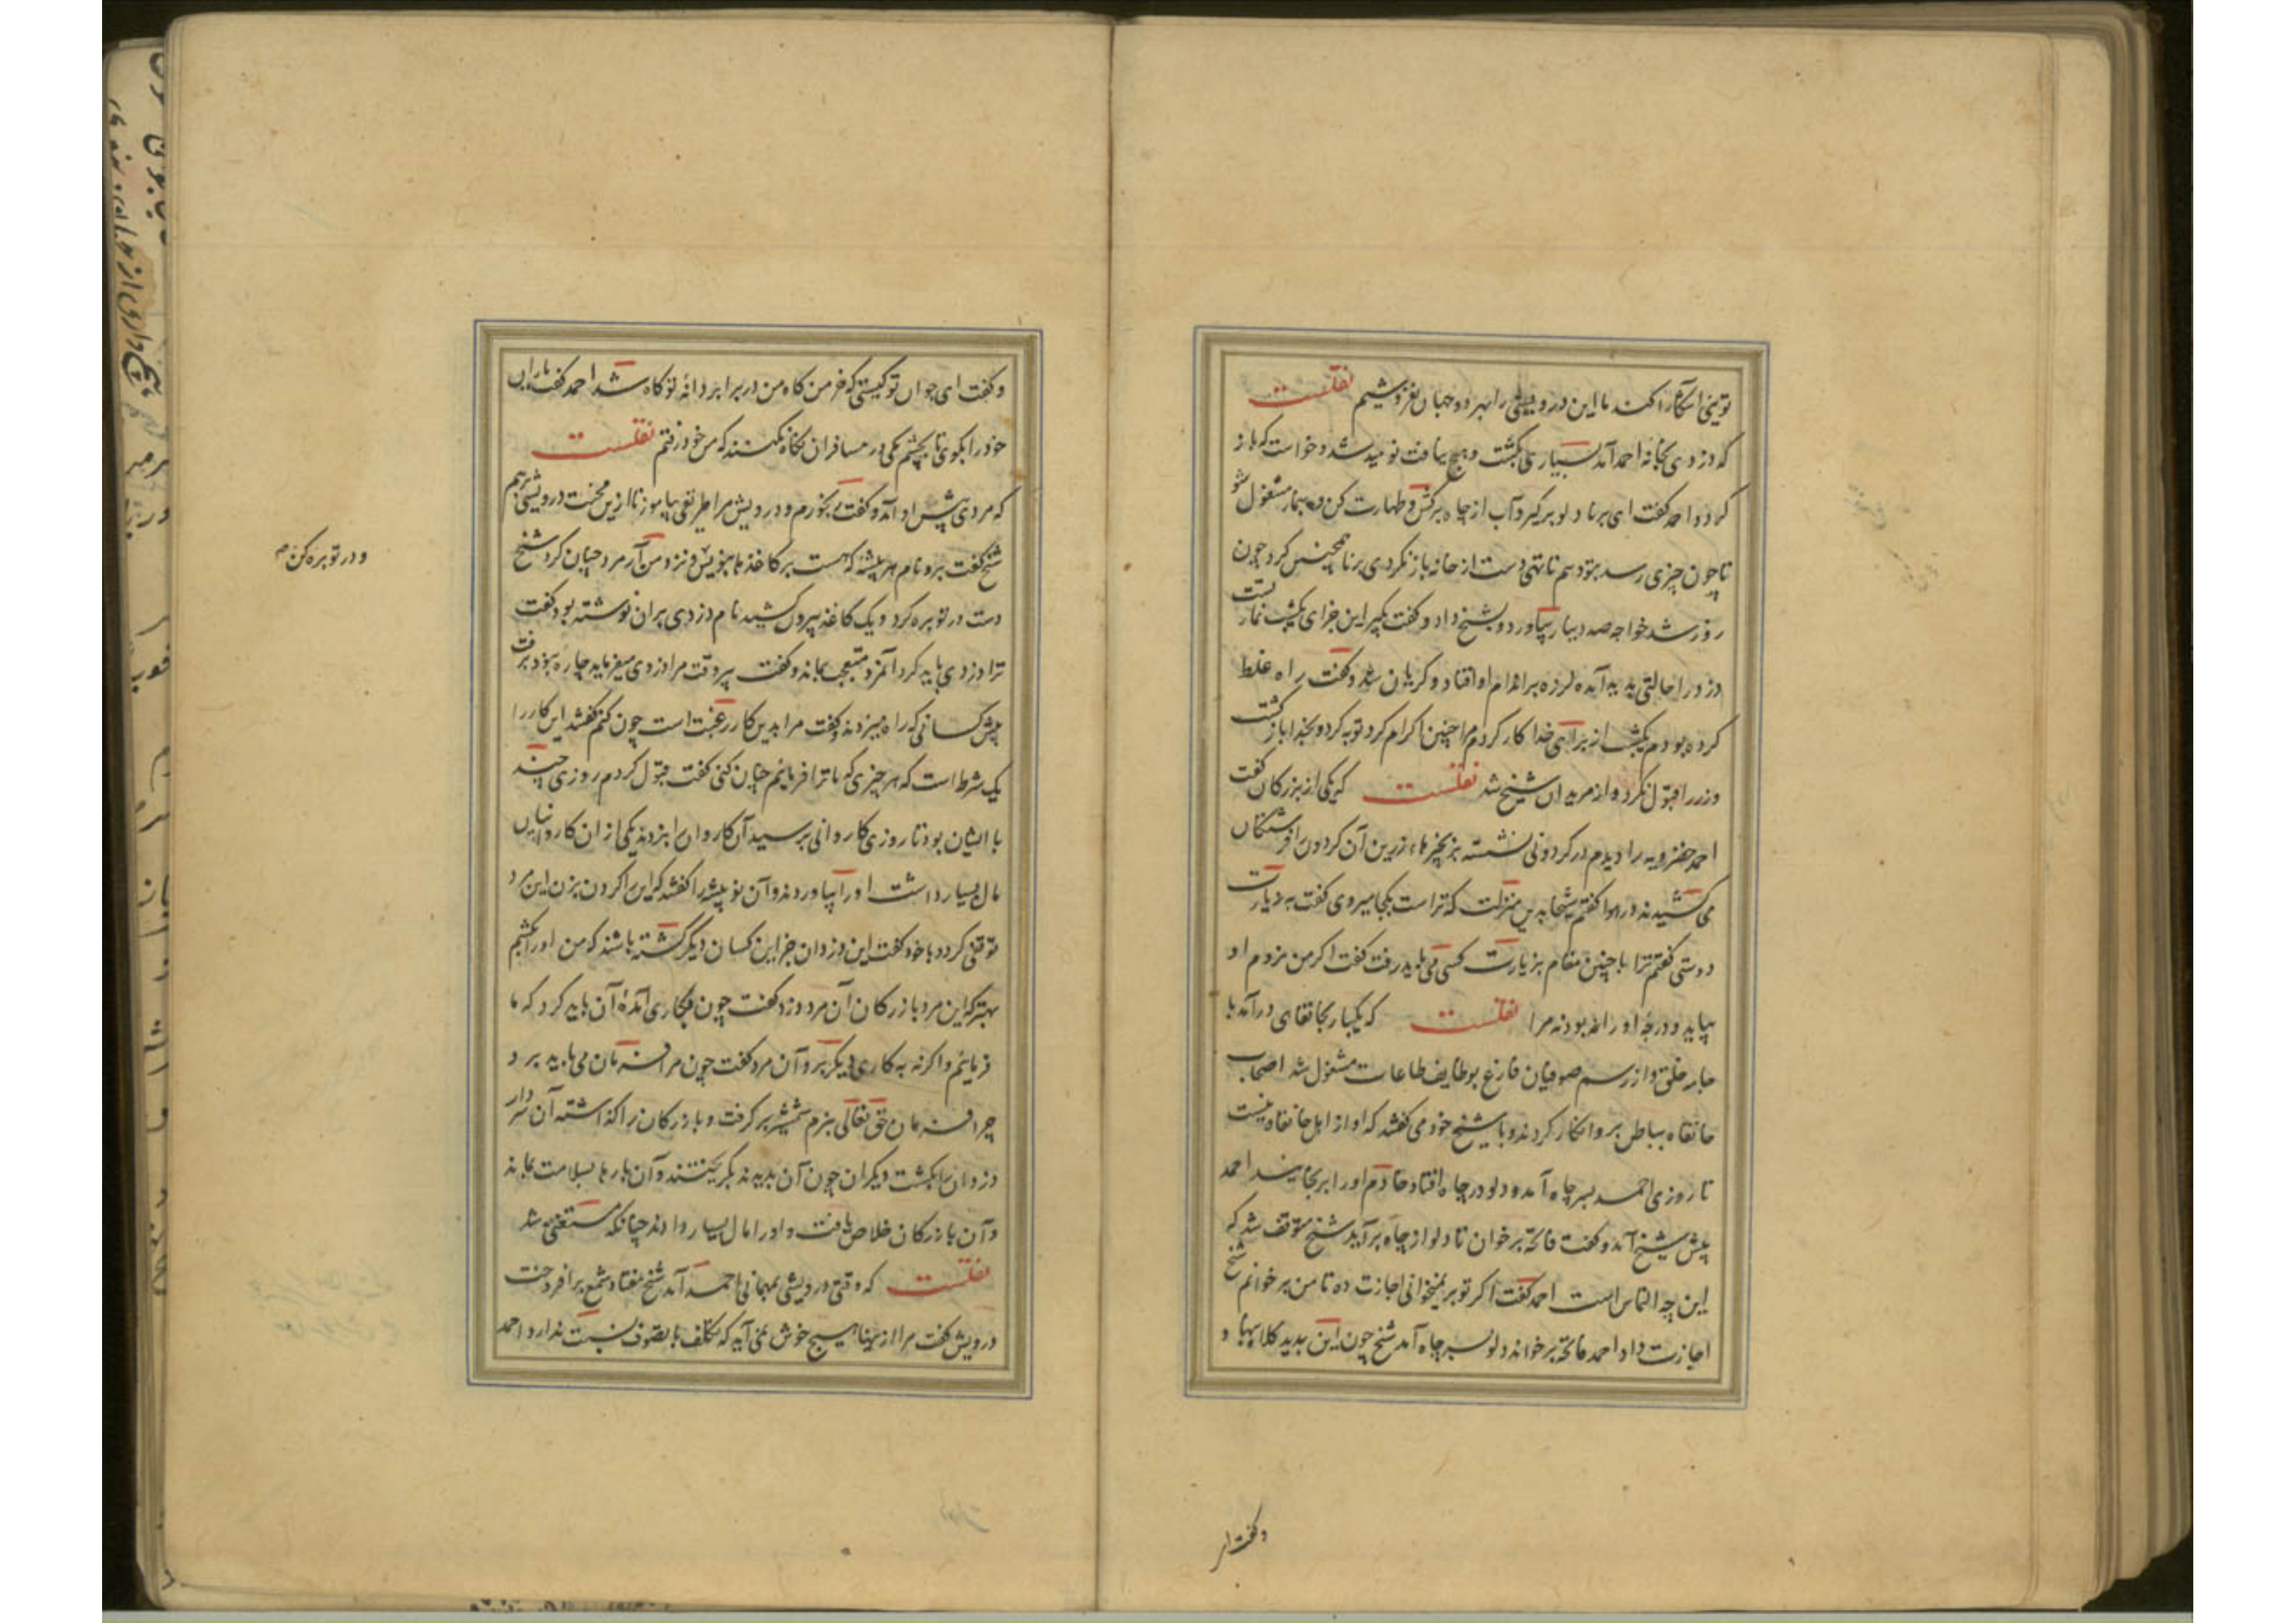 تویی آشکارا کند ما این درویشی را بهر دو جهان نفروشیم نقلست
که دزدی بخانه احمد آمد بسیاری بگشت و هیچ نیافت نومید شد و خواست که باز
گردد احمد گفت ای برنا دلو برگیر و آب از چاه برکش و طهارت کن و بنماز مشغول شو
تا چون چیزی رسد بتو دهم تا تهی دست از خانه باز نگردی برنا همچنین کرد چون
روز شد خواجه صد دینار بیاورد و بشیخ داد و گفت بگیر این جزای یکشب نماز تست
دزد را حالتی پدید آمد لرزه بر اندام او افتاد و گریان شد و گفت راه غلط
کرده بودم یکشب از برای خدا کار کردم مرا چنین اکرام کرد توبه کرد و بخدا باز گشت
و زر را قبول نکرد و از مریدان شیخ شد نقلست که یکی از بزرگان گفت
احمد خضرویه را دیدم در گردونی نشسته بزنجیرها زرین آن گردون را فرشتگان
می کشیدند در هوا گفتم شیخا بدین منزلت که تراست بکجا میروی گفت به زیارت
دوستی گفتم ترا با چنین مقام بزیارت کسی می باید رفت گفت اگر من نروم او
بیاید و درجه او را بود نه مرا نقلست که یکبار بخانقاهی درآمد با
جامه خلق و از رسم صوفیان فارغ بوظایف طاعات مشغول شد اصحاب
خانقاه بباطن برو انکار کردند و با شیخ خود می گفتند که او از اهل خانقاه نیست
تا روزی احمد بسر چاه آمد و دلو در چاه افتاد خادم او را برنجانید احمد
پیش شیخ آمد و گفت فاتحه برخوان تا دلو از چاه برآید شیخ متوقف شد که
این چه التماس است احمد گفت اگر تو بر نمیخوانی اجازت ده تا من برخوانم شیخ
اجازت داد احمد فاتحه برخواند دلو بسر چاه آمد شیخ چون این بدید کلاه بنهاد
و گفت ای
و گفت ای جوان تو کیستی که خرمن کاه من در برابر دانه تو کاه شد احمد گفت یاران
خود را بگوی تا بچشم کمی در مسافران نگاه نکنند که من خود رفتم نقلست
که مردی پیش او آمد و گفت رنجورم و درویش مرا طریقی بیاموز تا ازین محنت درویشی برهم
شیخ گفت برو نام هر پیشه که هست بر کاغذها بنویس و نزد من آر مرد چنان کرد شیخ
دست در توبره کرد و یک کاغذ بیرون کشید نام دزدی بران نوشته بود گفت
ترا دزدی باید کرد آنمرد متعجب بماند و گفت پیر وقت مرا دزدی میفرماید چاره نبود برفت
پیش کسانی که راه میزدند و گفت مرا بدین کار رغبت است چون کنم گفتند این کار را
یک شرط است که هر چیزی که ما ترا فرمائیم چنان کنی گفت قبول کردم روزی چند
با ایشان بود تا روزی کاروانی برسید آن کاروان را بزدند یکی از ان کاروانیان
مال بسیار داشت او را بیاوردند و آن نو پیشه را گفتند که این را گردن بزن این مرد
توقفی کرد و با خود گفت این دزدان جز این کسان دیگر کشته باشند که من او را بکشم
بهتر که این مرد بازرگان آن مرد دزد گفت چون بکاری آمده آن باید کرد که ما
فرمائیم و اگرنه به کاری دیگر برو آن مرد گفت چون مرا فرمان می باید برد
چرا فرمان حق تعالی نبرم شمشیر برگرفت و بازرگان را گذاشته آن سردار
دزدان را بکشت دیگران چون آن بدیدند بگریختند و آن بارها بسلامت بماند
و آن بازرگان خلاص یافت و او را مال بسیار دادند چنانکه مستغنی شد
نقلست که وقتی درویشی بمهمانی احمد آمد شیخ هفتاد شمع برافروخت
درویش گفت مرا ازینها هیچ خوش نمی آید که تکلف با تصوف نسبت ندارد احمد
و در توبره کن